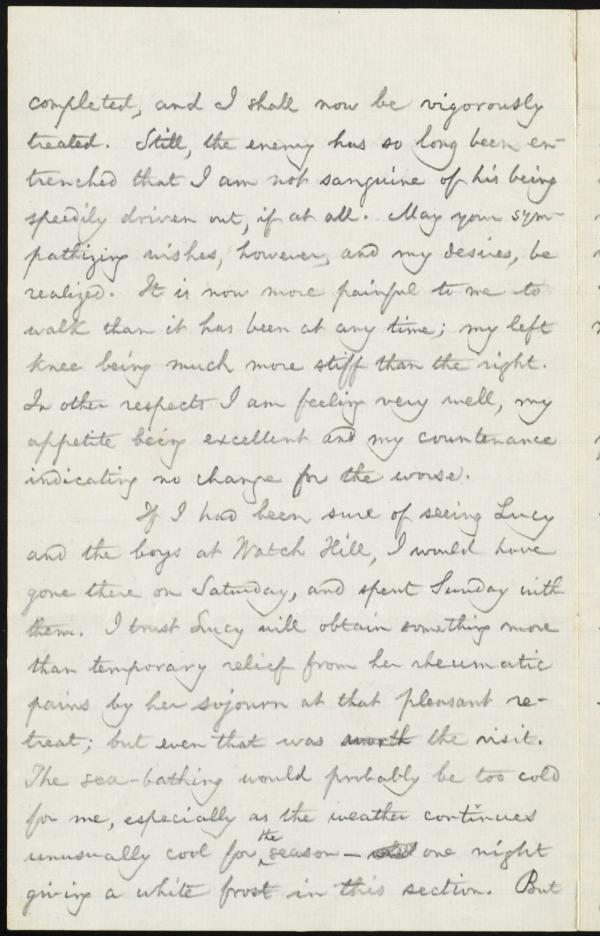 completed, and I shall now be vigorously
treated. Still, the enemy has so long been en-
trenched that I am not sanguine of his being
speedily driven out, if at all. May your sym-
pathizing wishes, however, and my desires, be
realized. It is now more painful to me to
walk than it has been at any time; my left
knee being much more stiff than the right.
In other respects I am feeling very well, my
appetite being excellent and my countenance
indicating no change for the worse.
If I had been sure of seeing Lucy
and the boys at Watch Hill, I would have
gone there on Saturday, and spent Sunday with
them. I trust Lucy will obtain something more
than temporary relief from her rheumatic
pains by her sojourn at that pleasant re-
treat; but even that was worth the visit.
The sea-bathing would probably be too cold
for me, especially as the weather continues
unusually cool for the season — one night
giving a white frost in this section. But